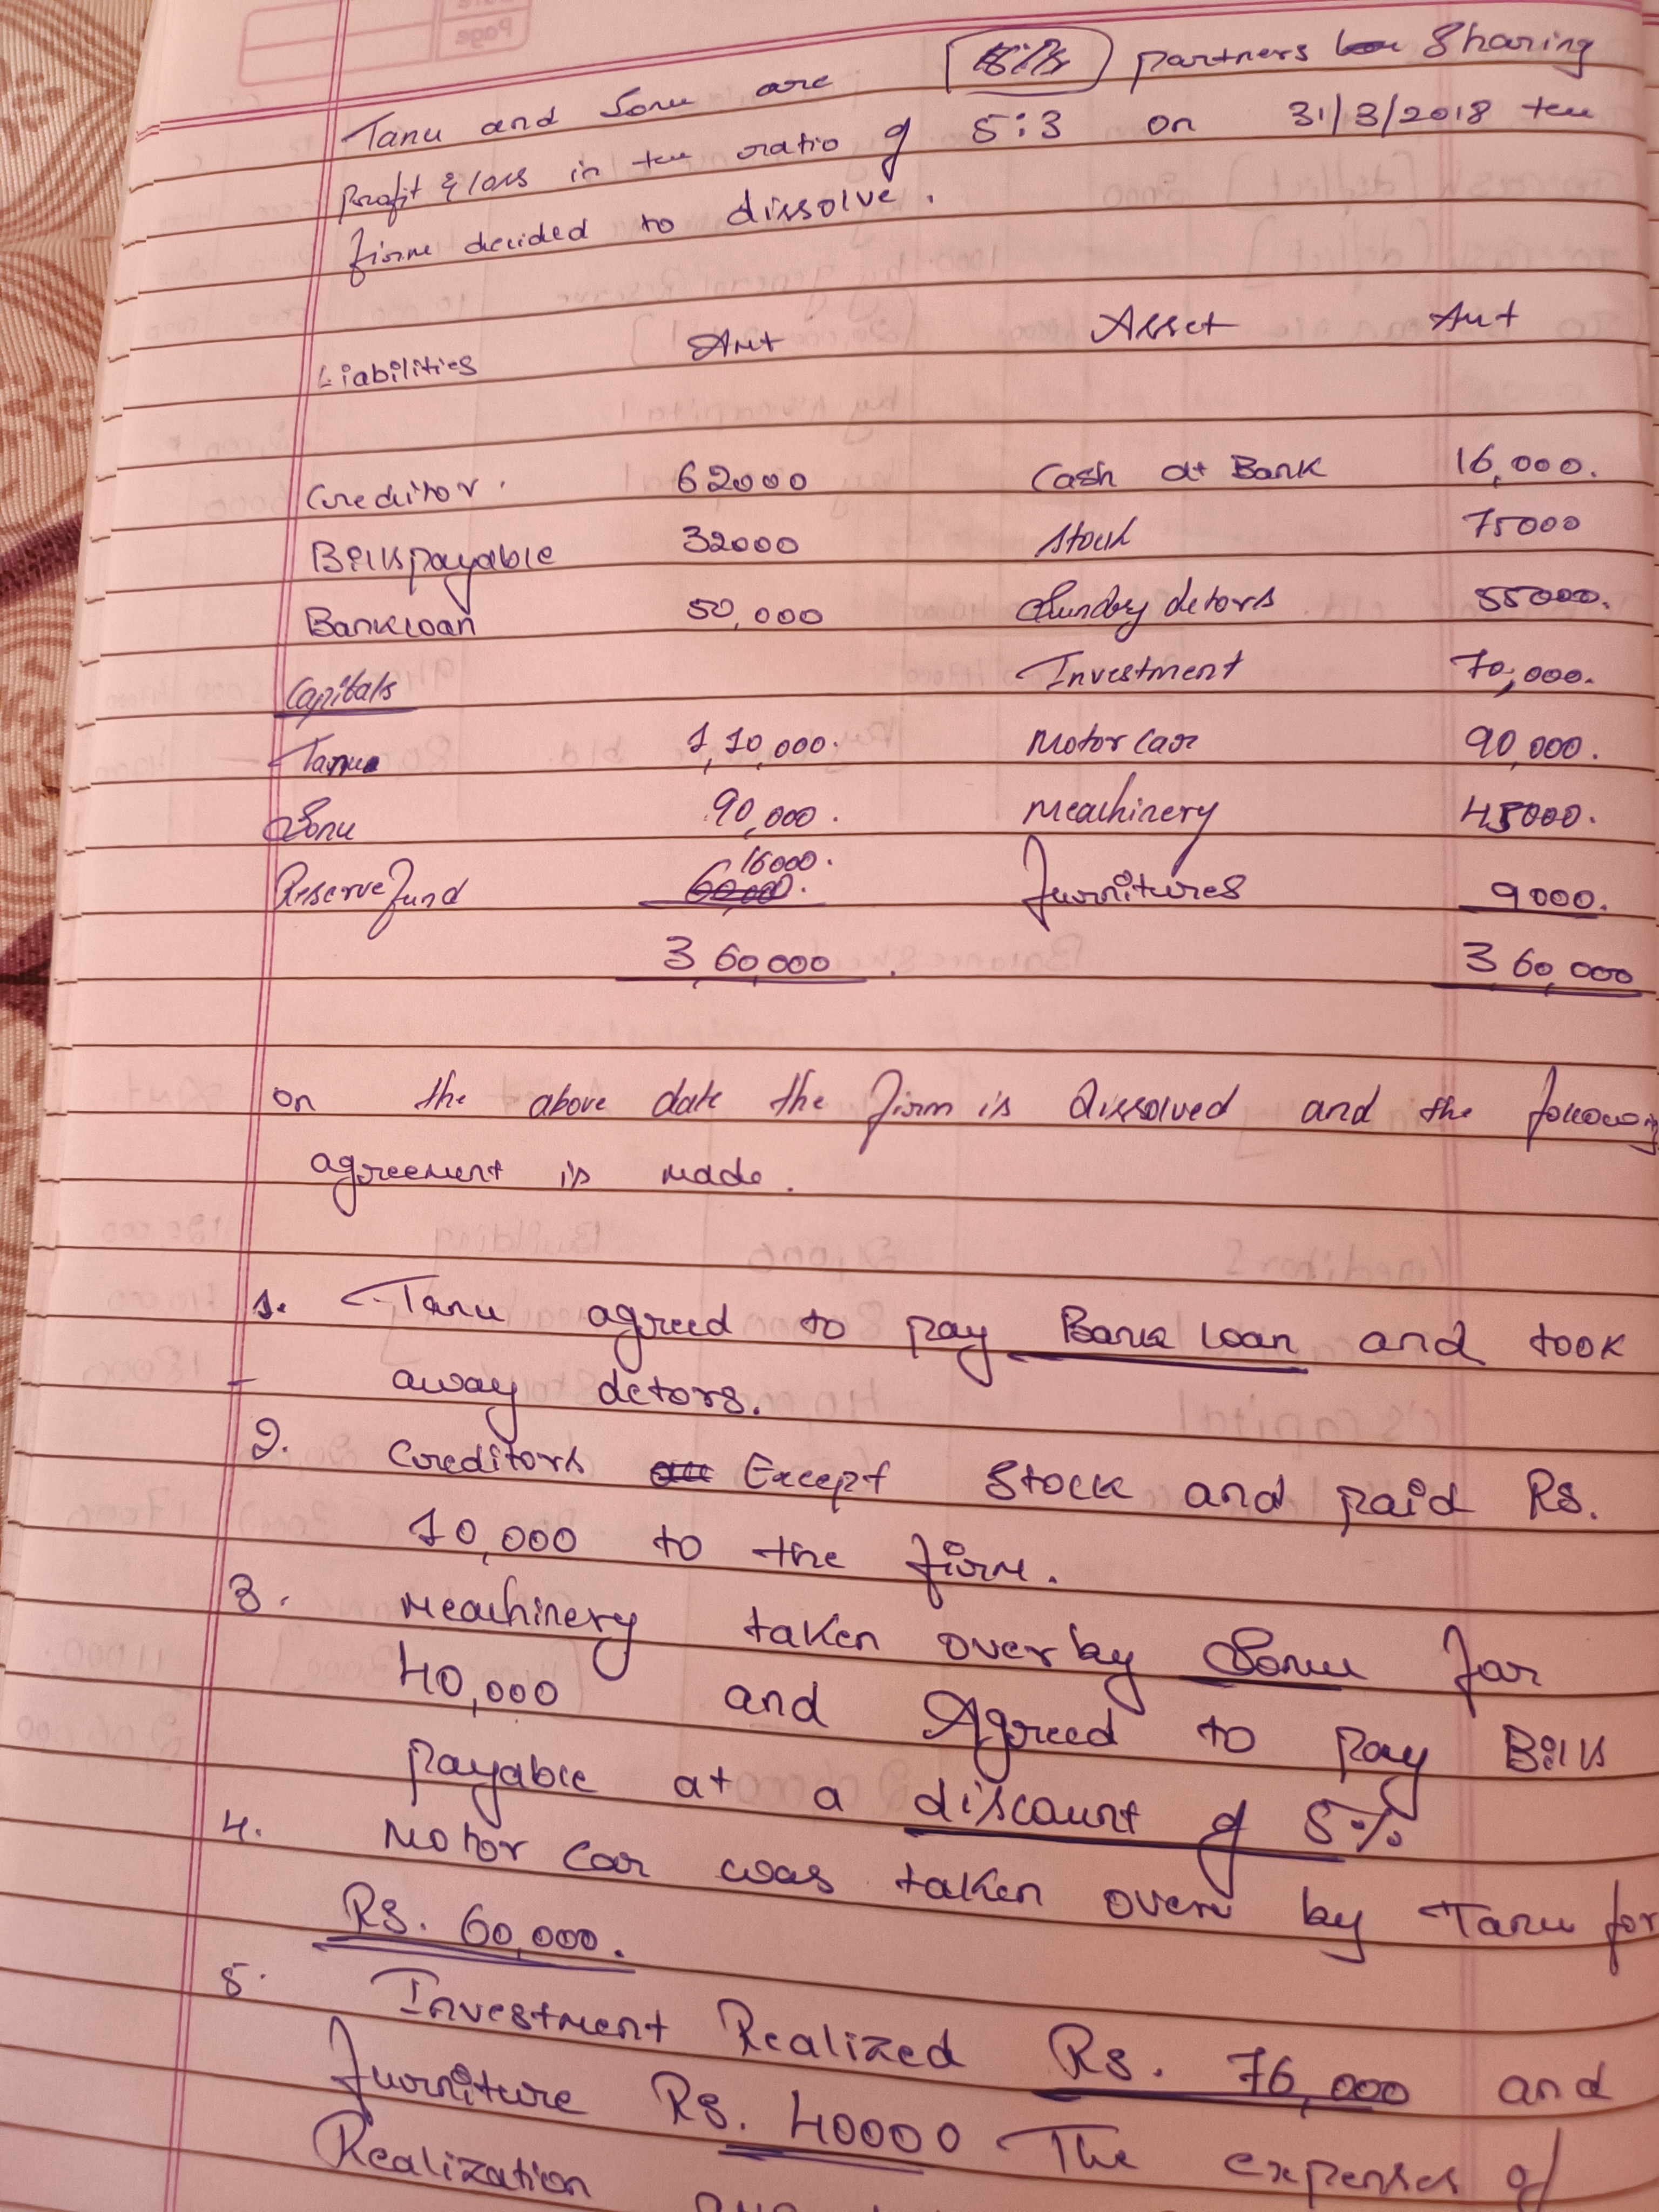 Page
Tanu and Sonu are partners Sharing
Profit & loss in the ratio of 5:3 on 31/3/2018 the
firm decided to dissolve.
Liabilities Amt Asset Amt
Creditor. 62000 Cash at Bank 16,000.
Bills payable 32000 Stock 75000
Bank loan 50,000 Sundry detors 55000.
Capitals Investment 70,000.
Tanu 1,10,000. Motor car 90,000.
Sonu 90,000. Meachinery 45000.
16000.
Reserve fund 60,000. furnitures 9000.
3,60,000 3,60,000
on the above date the firm is dissolved and the following
agreement is made.
1. Tanu agreed to pay Bank loan and took
away detors.
2. Creditors Except Stock and paid Rs.
10,000 to the firm.
3. Meachinery taken over by Sonu for
40,000 and Agreed to pay Bills
payable at a discount of 5%
4. Motor car was taken over by Tanu for
Rs. 60,000.
5. Investment Realized Rs. 76,000 and
furniture Rs. 40000 The expenses of
Realization